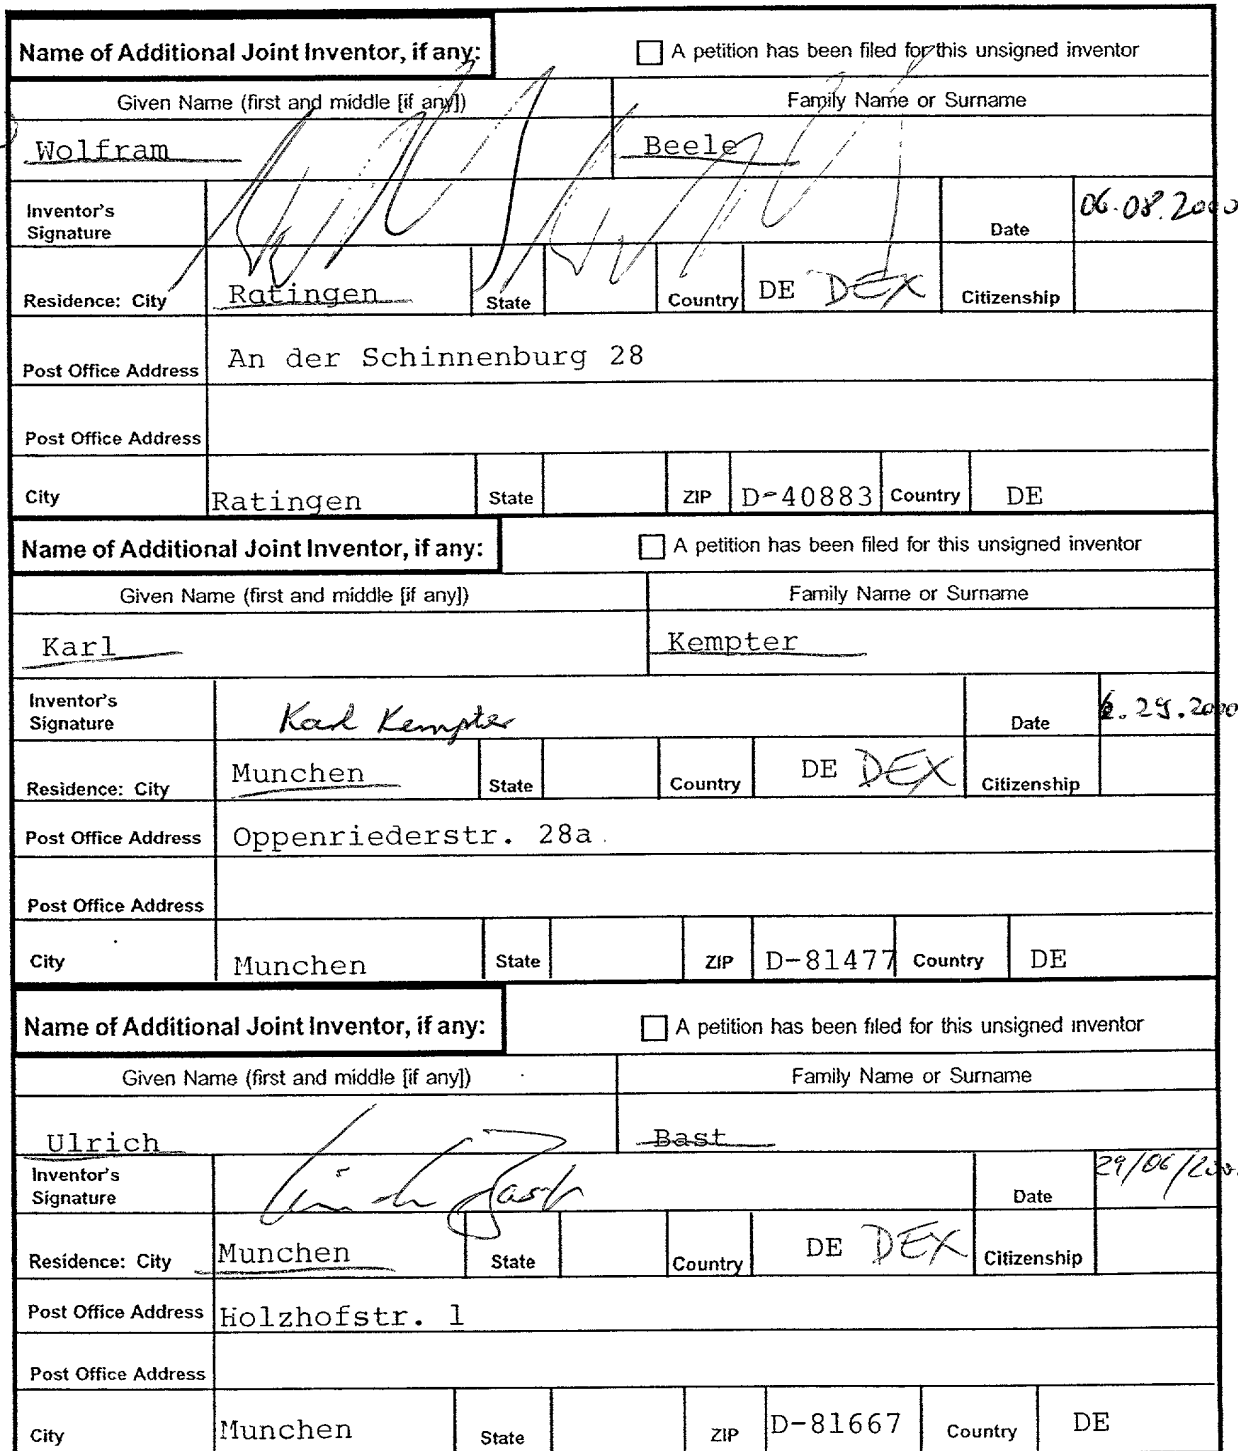 Name of Additional Joint Inventor, if any: A petition has been filed for this unsigned inventor
Given Name (first and middle [if any]) Family Name or Surname
Wolfram Beele
Inventor's Signature Date 06.08.2000
Residence: City Ratingen State Country DE DEX Citizenship
Post Office Address An der Schinnenburg 28
Post Office Address
City Ratingen State ZIP D-40883 Country DE
Name of Additional Joint Inventor, if any: A petition has been filed for this unsigned inventor
Given Name (first and middle [if any]) Family Name or Surname
Karl Kempter
Inventor's Signature Karl Kempter Date 6.29.2000
Residence: City Munchen State Country DE DEX Citizenship
Post Office Address Oppenriederstr. 28a
Post Office Address
City Munchen State ZIP D-81477 Country DE
Name of Additional Joint Inventor, if any: A petition has been filed for this unsigned inventor
Given Name (first and middle [if any]) Family Name or Surname
Ulrich Bast
Inventor's Signature Ulrich Bast Date 29/06/200
Residence: City Munchen State Country DE DEX Citizenship
Post Office Address Holzhofstr. 1
Post Office Address
City Munchen State ZIP D-81667 Country DE